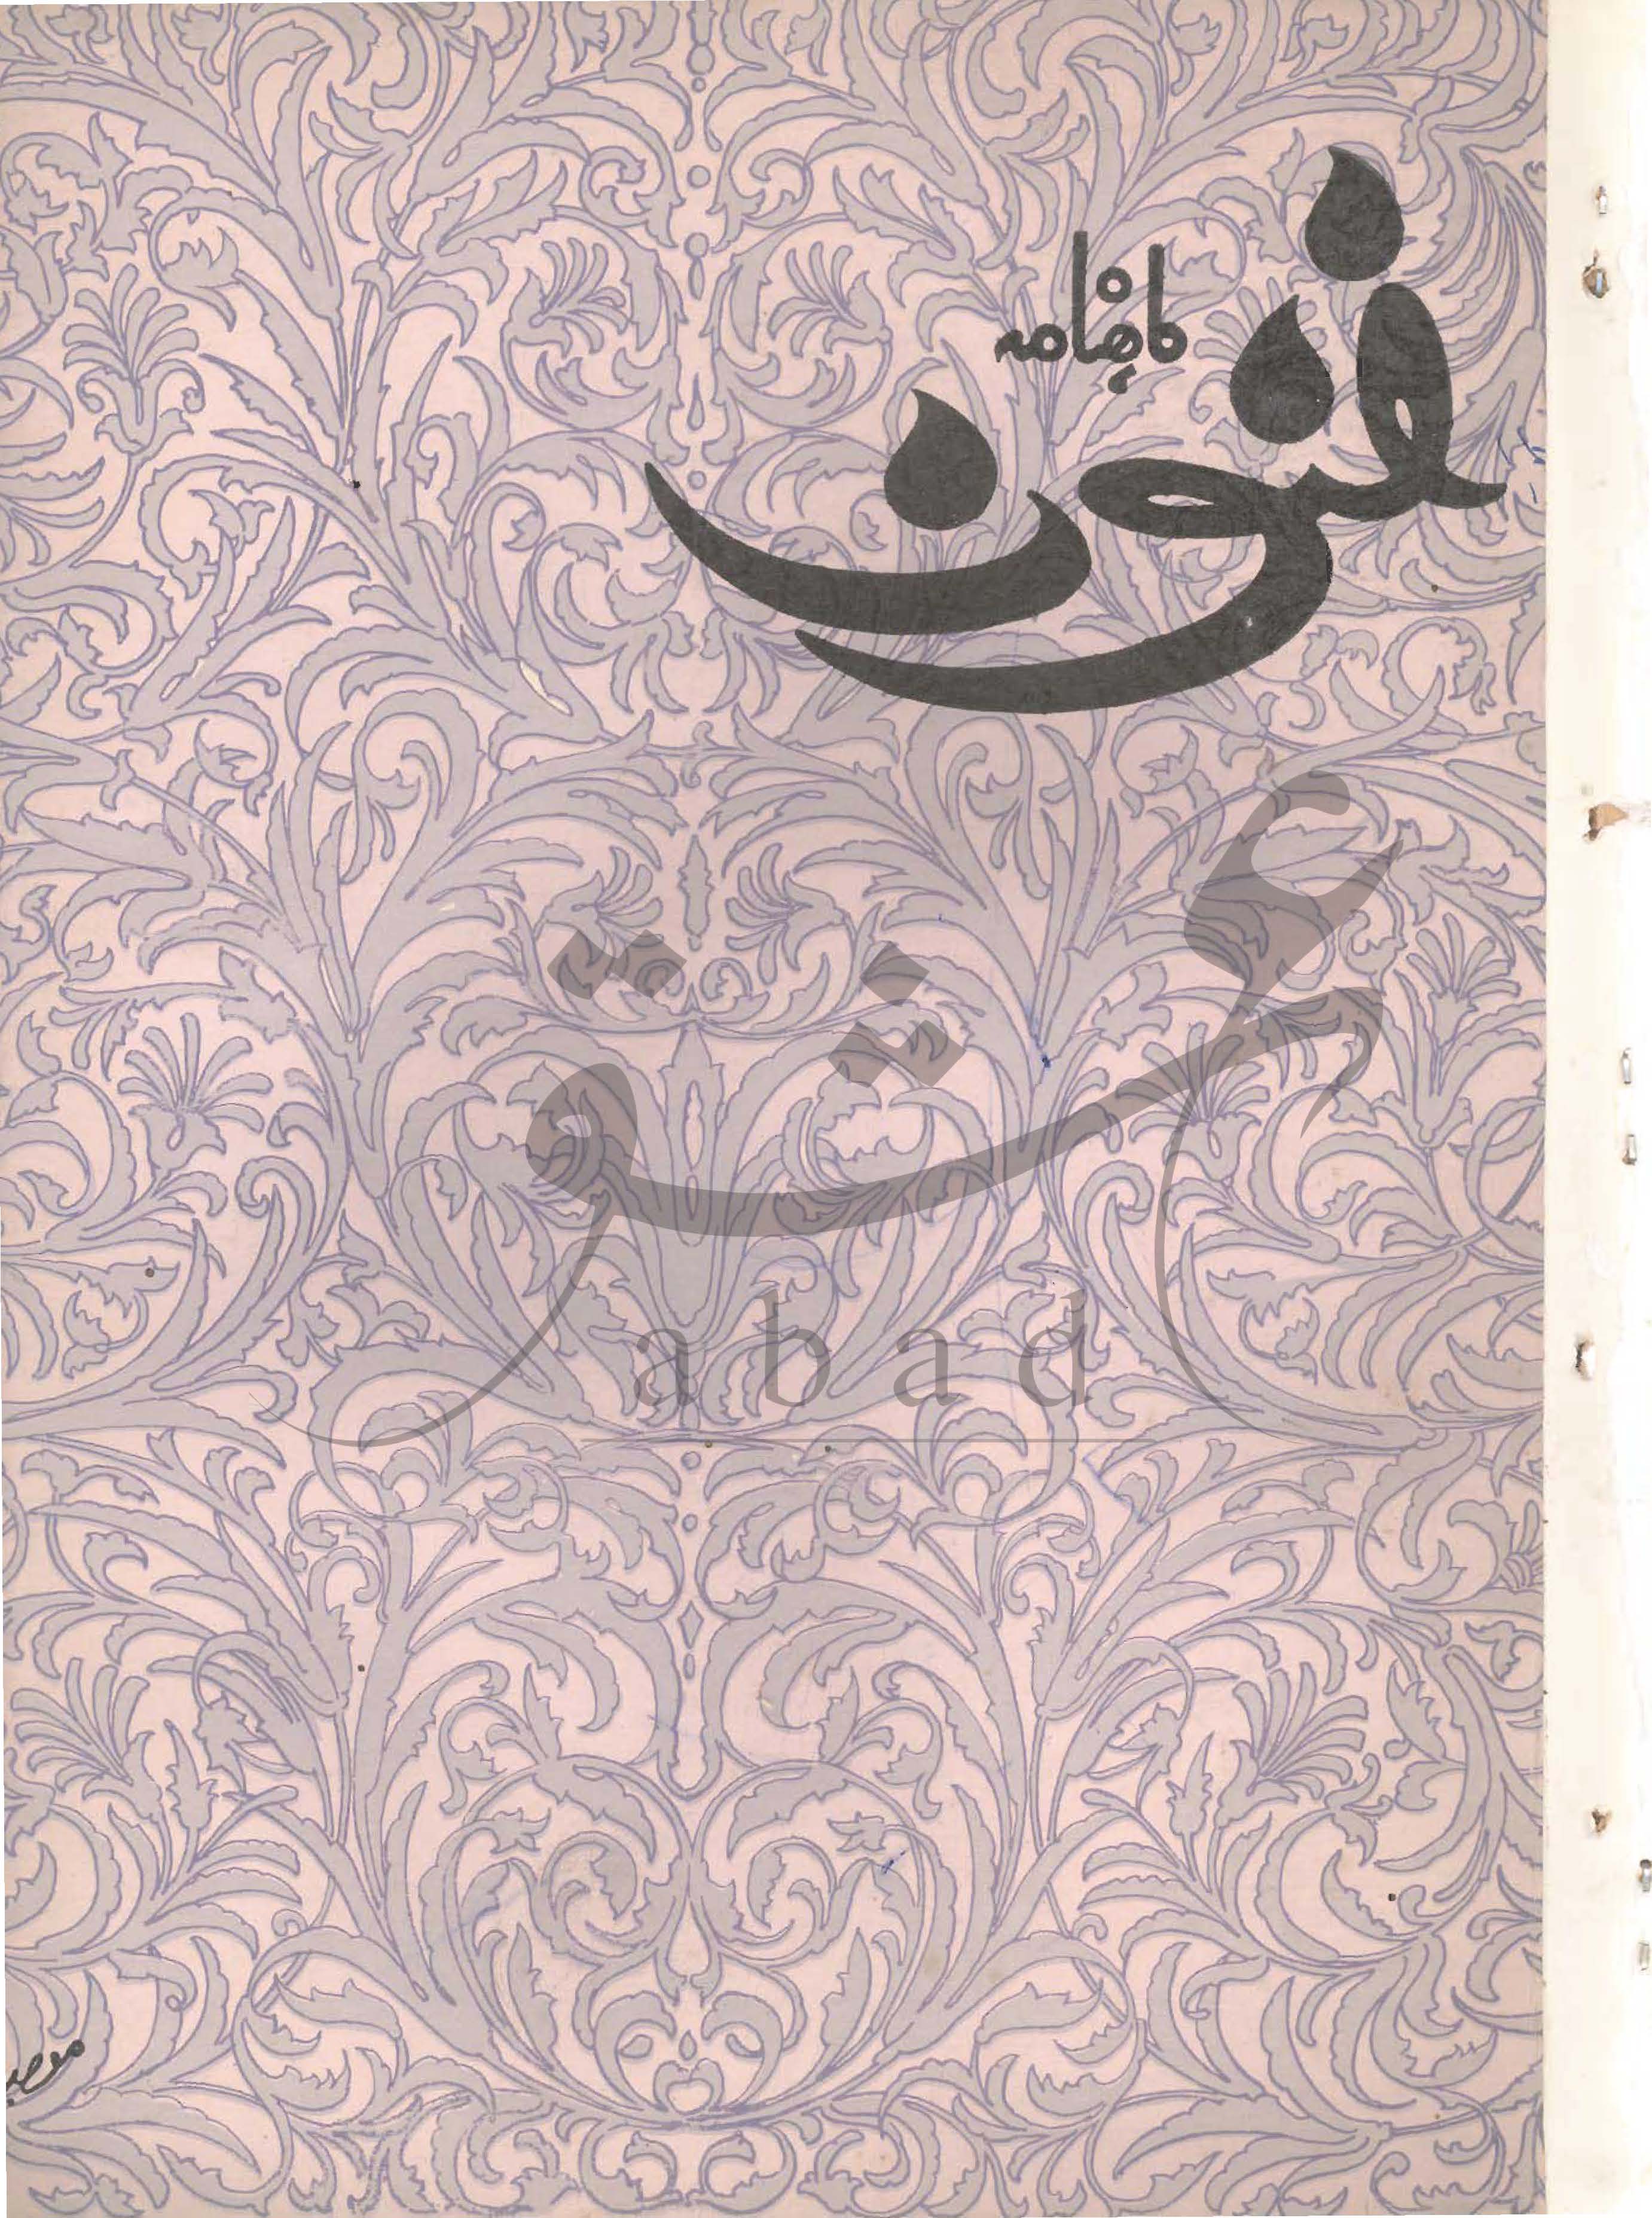 ماہنامہ
فنون
عتیق
abad